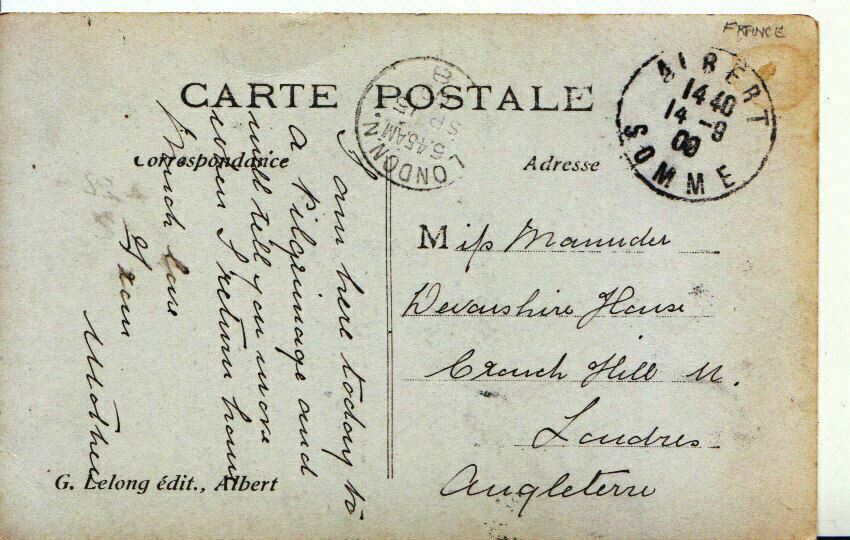 FRANCE
CARTE POSTALE
Correspondance
Adresse
ALBERT
14 40
14 - 9
09
SOMME
LONDON. N.
5.45 AM
SP 15
I am here today to
a Pilgrimage and
will tell you more
when I return home
Much love
From
Mother
Miss
Devonshire House
Crouch Hill N.
Londres
Angleterre
G. Lelong édit., Albert